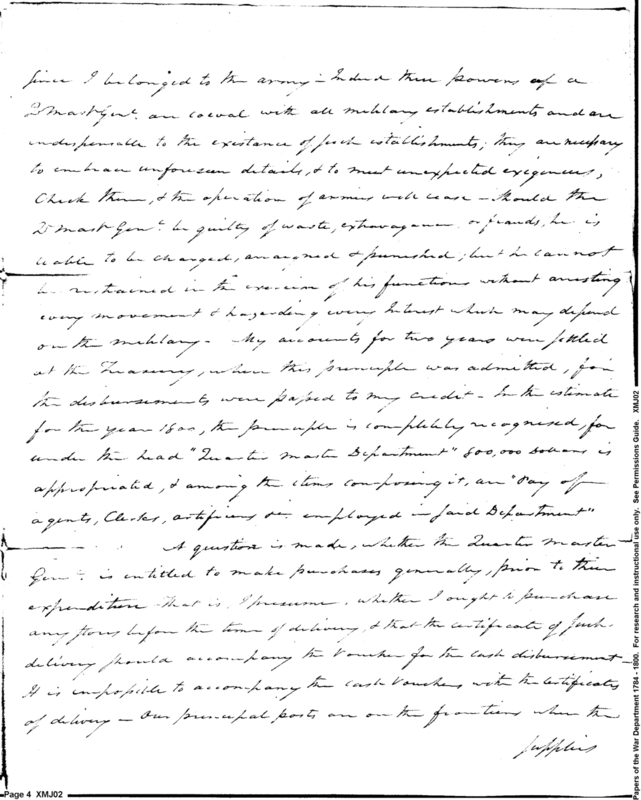 since I belonged to the army – Indeed these powers of a
Qr Mast Genl. are coeval with all military establishments and are
indispensable to the existance of such establishments; they are necessary
to embrace unforeseen details, & to meet unexpected exigencies;
Check them, & the operation of armies will cease – Should the
Qr Mast Genl. be guilty of waste, extravagance or frauds, he is
liable to be charged, arraigned & punished; but he cannot
be restrained in the exercise of his functions without arresting
every movement & hazarding every Interest which may depend
on the military – My accounts for two years were settled
at the Treasury, where this principle was admitted, for
the disbursements were passed to my credit – In the estimate
for the year 1800, the principle is completely recognised, for
under the head "Quarter Master Department" 800,000 Dollars is
appropriated, & among the items composing it, are "Pay of
agents, Clerks, artificers &c. employed in said Department"
A question is made, whether the Quarter Master
Genl. is entitled to make purchases generally, prior to their
expenditure – that is, I presume, whether I ought to purchase
any stores before the time of delivery, & that the certificate of such
delivery should accompany the Voucher for the cash disbursement –
It is impossible to accompany the cash Vouchers with the Certificates
of delivery – Our principal posts are on the frontiers where the
supplies
Page 4 XMJ02
Papers of the War Department 1784 - 1800. For research and instructional use only. See Permissions Guide. XMJ02